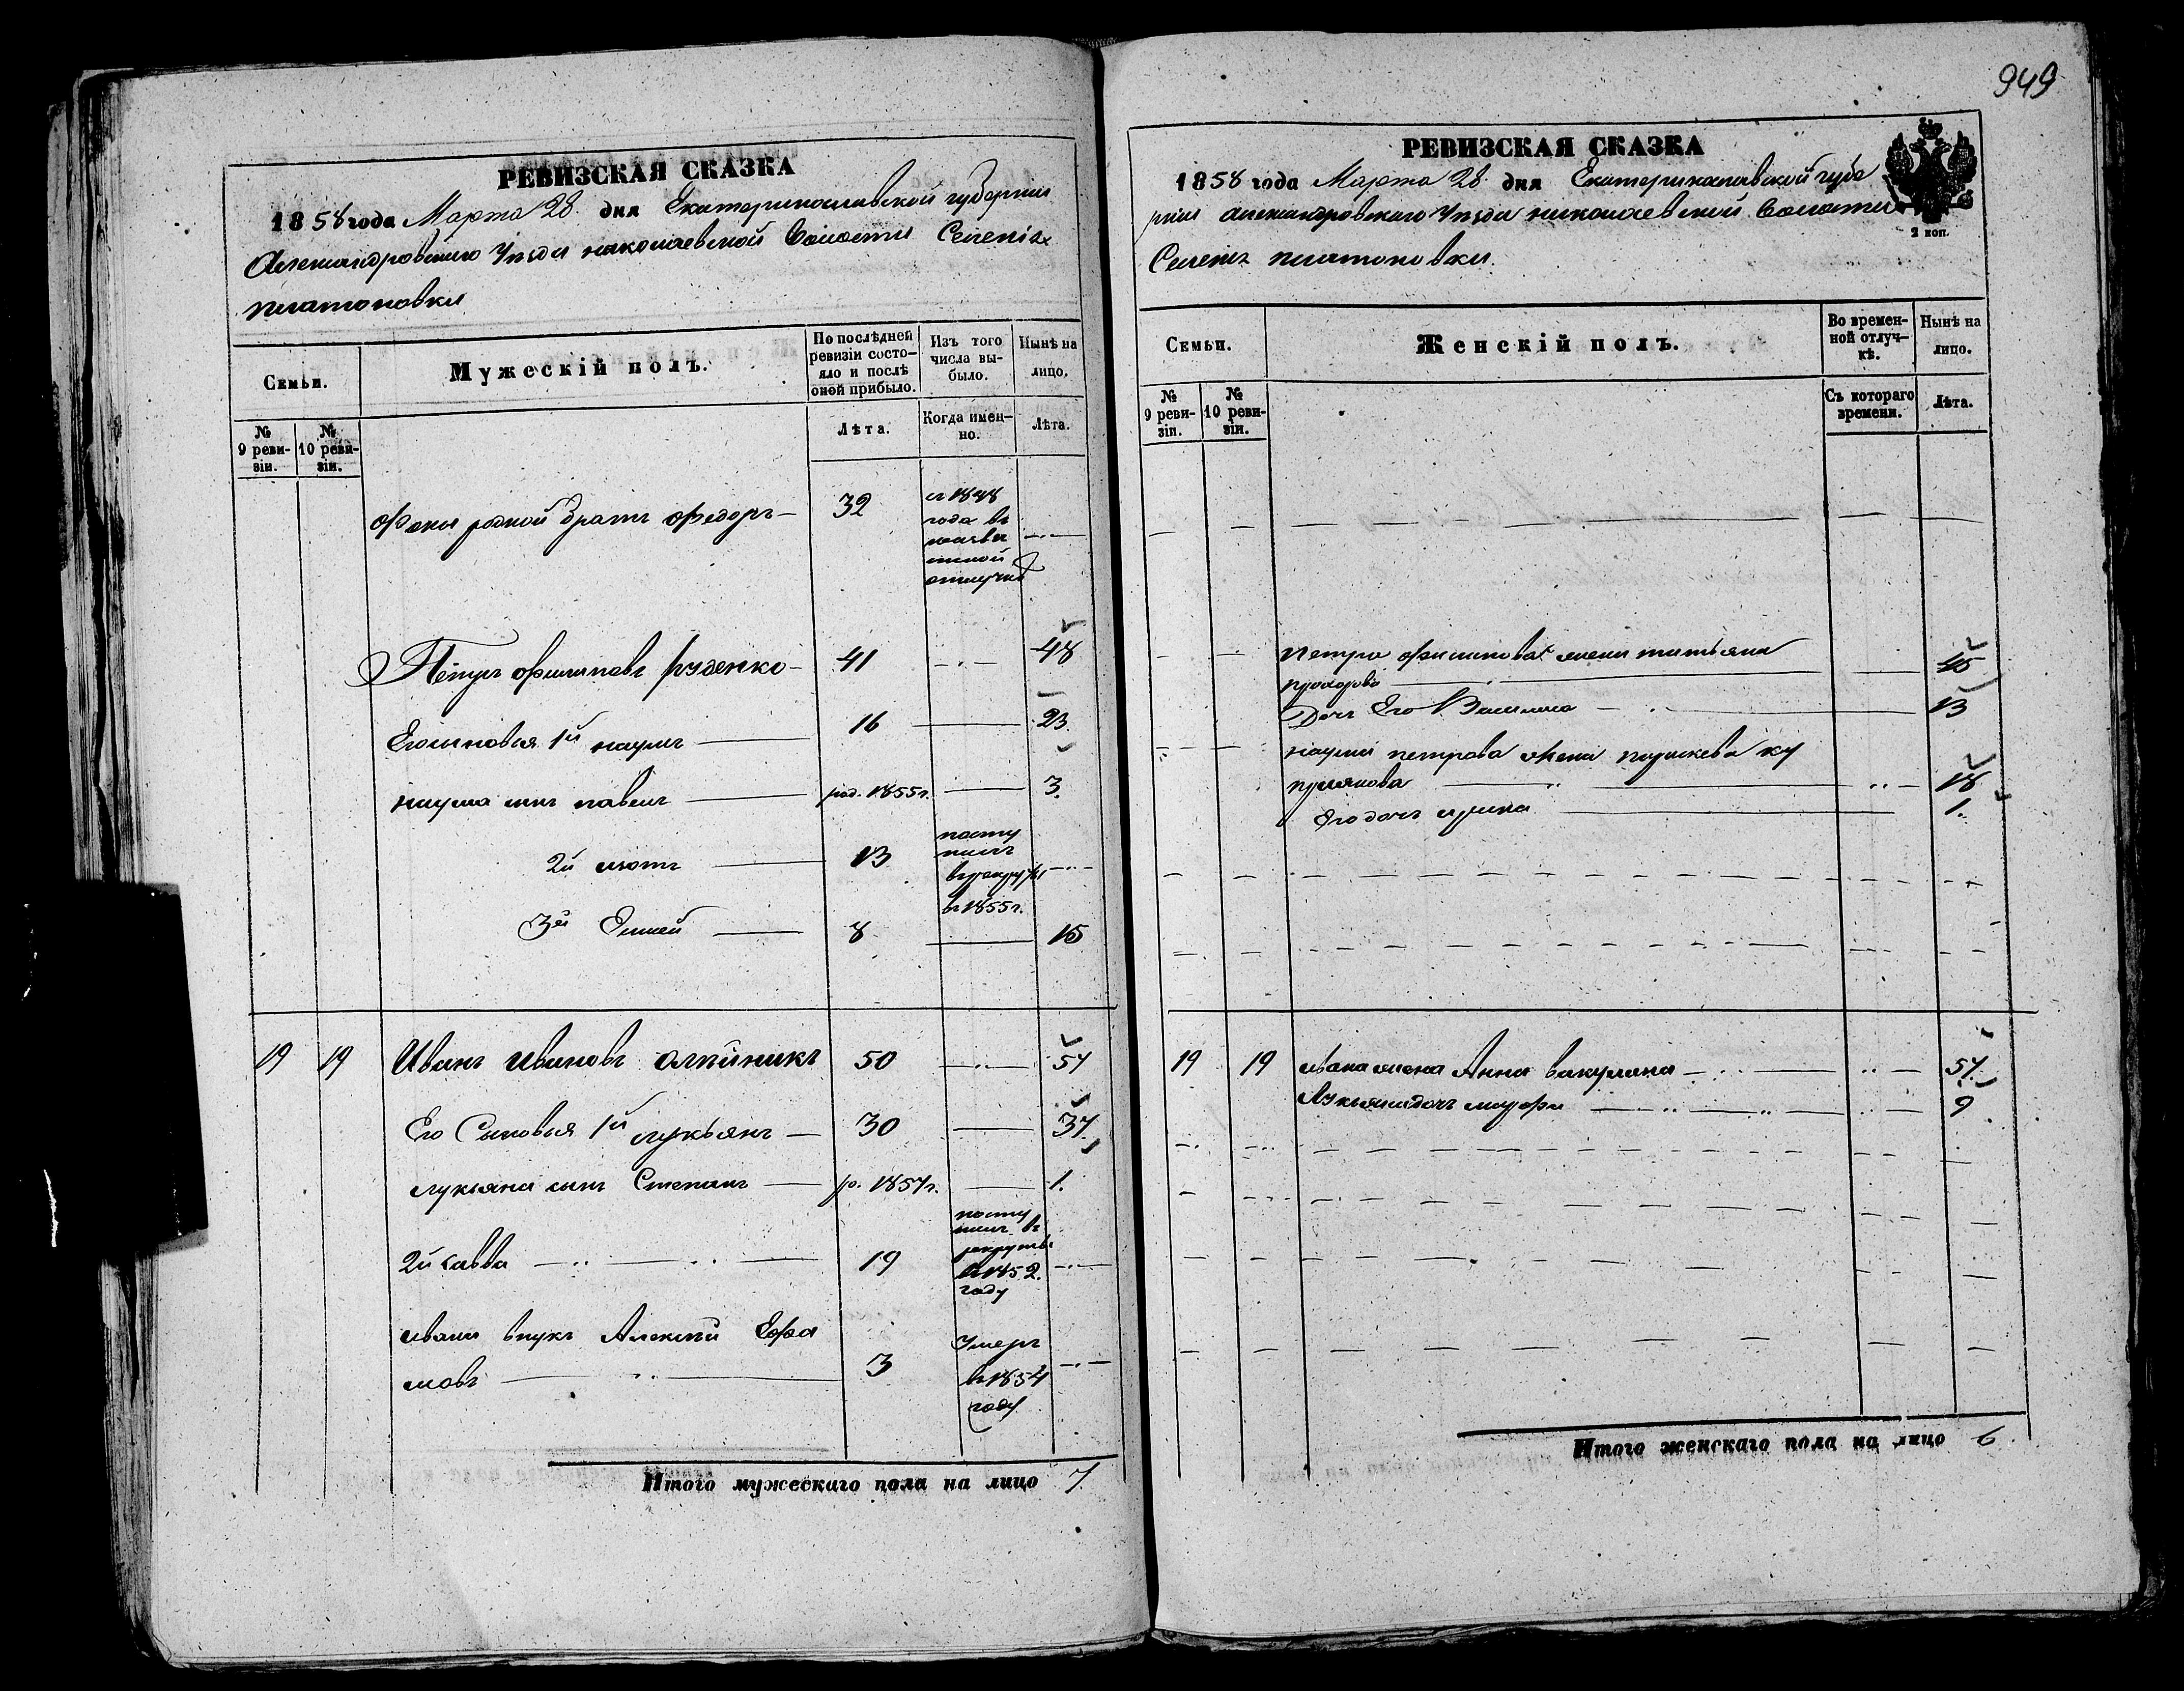 949
РЕВИЗСКАЯ СКАЗКА
1858 года Марта 28. дня Екатеринославской губернии
Александровскаго Уѣзда николаевской Волости Селенія
платоновки
Семьи.
Мужескій полъ.
По послѣдней ревизіи состо-
яло и послѣ
оной прибыло.
Изъ того
числа вы-
было.
Нынѣ на
лицо.
№
9 реви-
зіи.
№
10 реви-
зіи.
Лѣта.
Когда имен-
но.
Лѣта.
Фоки родной братъ Федоръ — 32 съ 1848
года въ
отлучкѣ
Петръ Филиповъ Руденко — 41 48
Его сыновья 1й наумъ 16 23.
наума сынъ павелъ род. 1855 г. 3.
2й изотъ 13 посту
пилъ
в рекруты
въ 1855 г.
3й Елисей 8 15
19 19 Иванъ Ивановъ Олѣйникъ 50 57
Его Сыновья 1й лукьянъ — 30 37.
лукьяна сынъ Степанъ — ро. 1857 г. 1.
2й савва 19 посту
пилъ въ
рекруты
въ 1852.
году
ивана внукъ Алексѣй Ефи
мовъ 3 Умеръ
въ 1854
году
Итого мужескаго пола на лицо 7.
РЕВИЗСКАЯ СКАЗКА
1858 года Марта 28. дня Екатеринославской губе
рніи александровскаго Уѣзда николаевской Волости
Селенія платоновки.
2 коп.
Семьи.
Женскій полъ.
Во времен-
ной отлуч-
кѣ.
Нынѣ на
лицо.
№
9 реви-
зіи.
№
10 реви-
зіи.
Съ котораго
времени.
Лѣта.
Петра Филипова жена татьяна
прохорова 45
Дочь Его Василиса 13
наума петрова жена параскева ку
приянова 18
Его дочь ирина 1.
19 19 ивана жена Анна вакулина 57.
Лукьяна дочь марфа 9
Итого женскаго пола на лицо 6